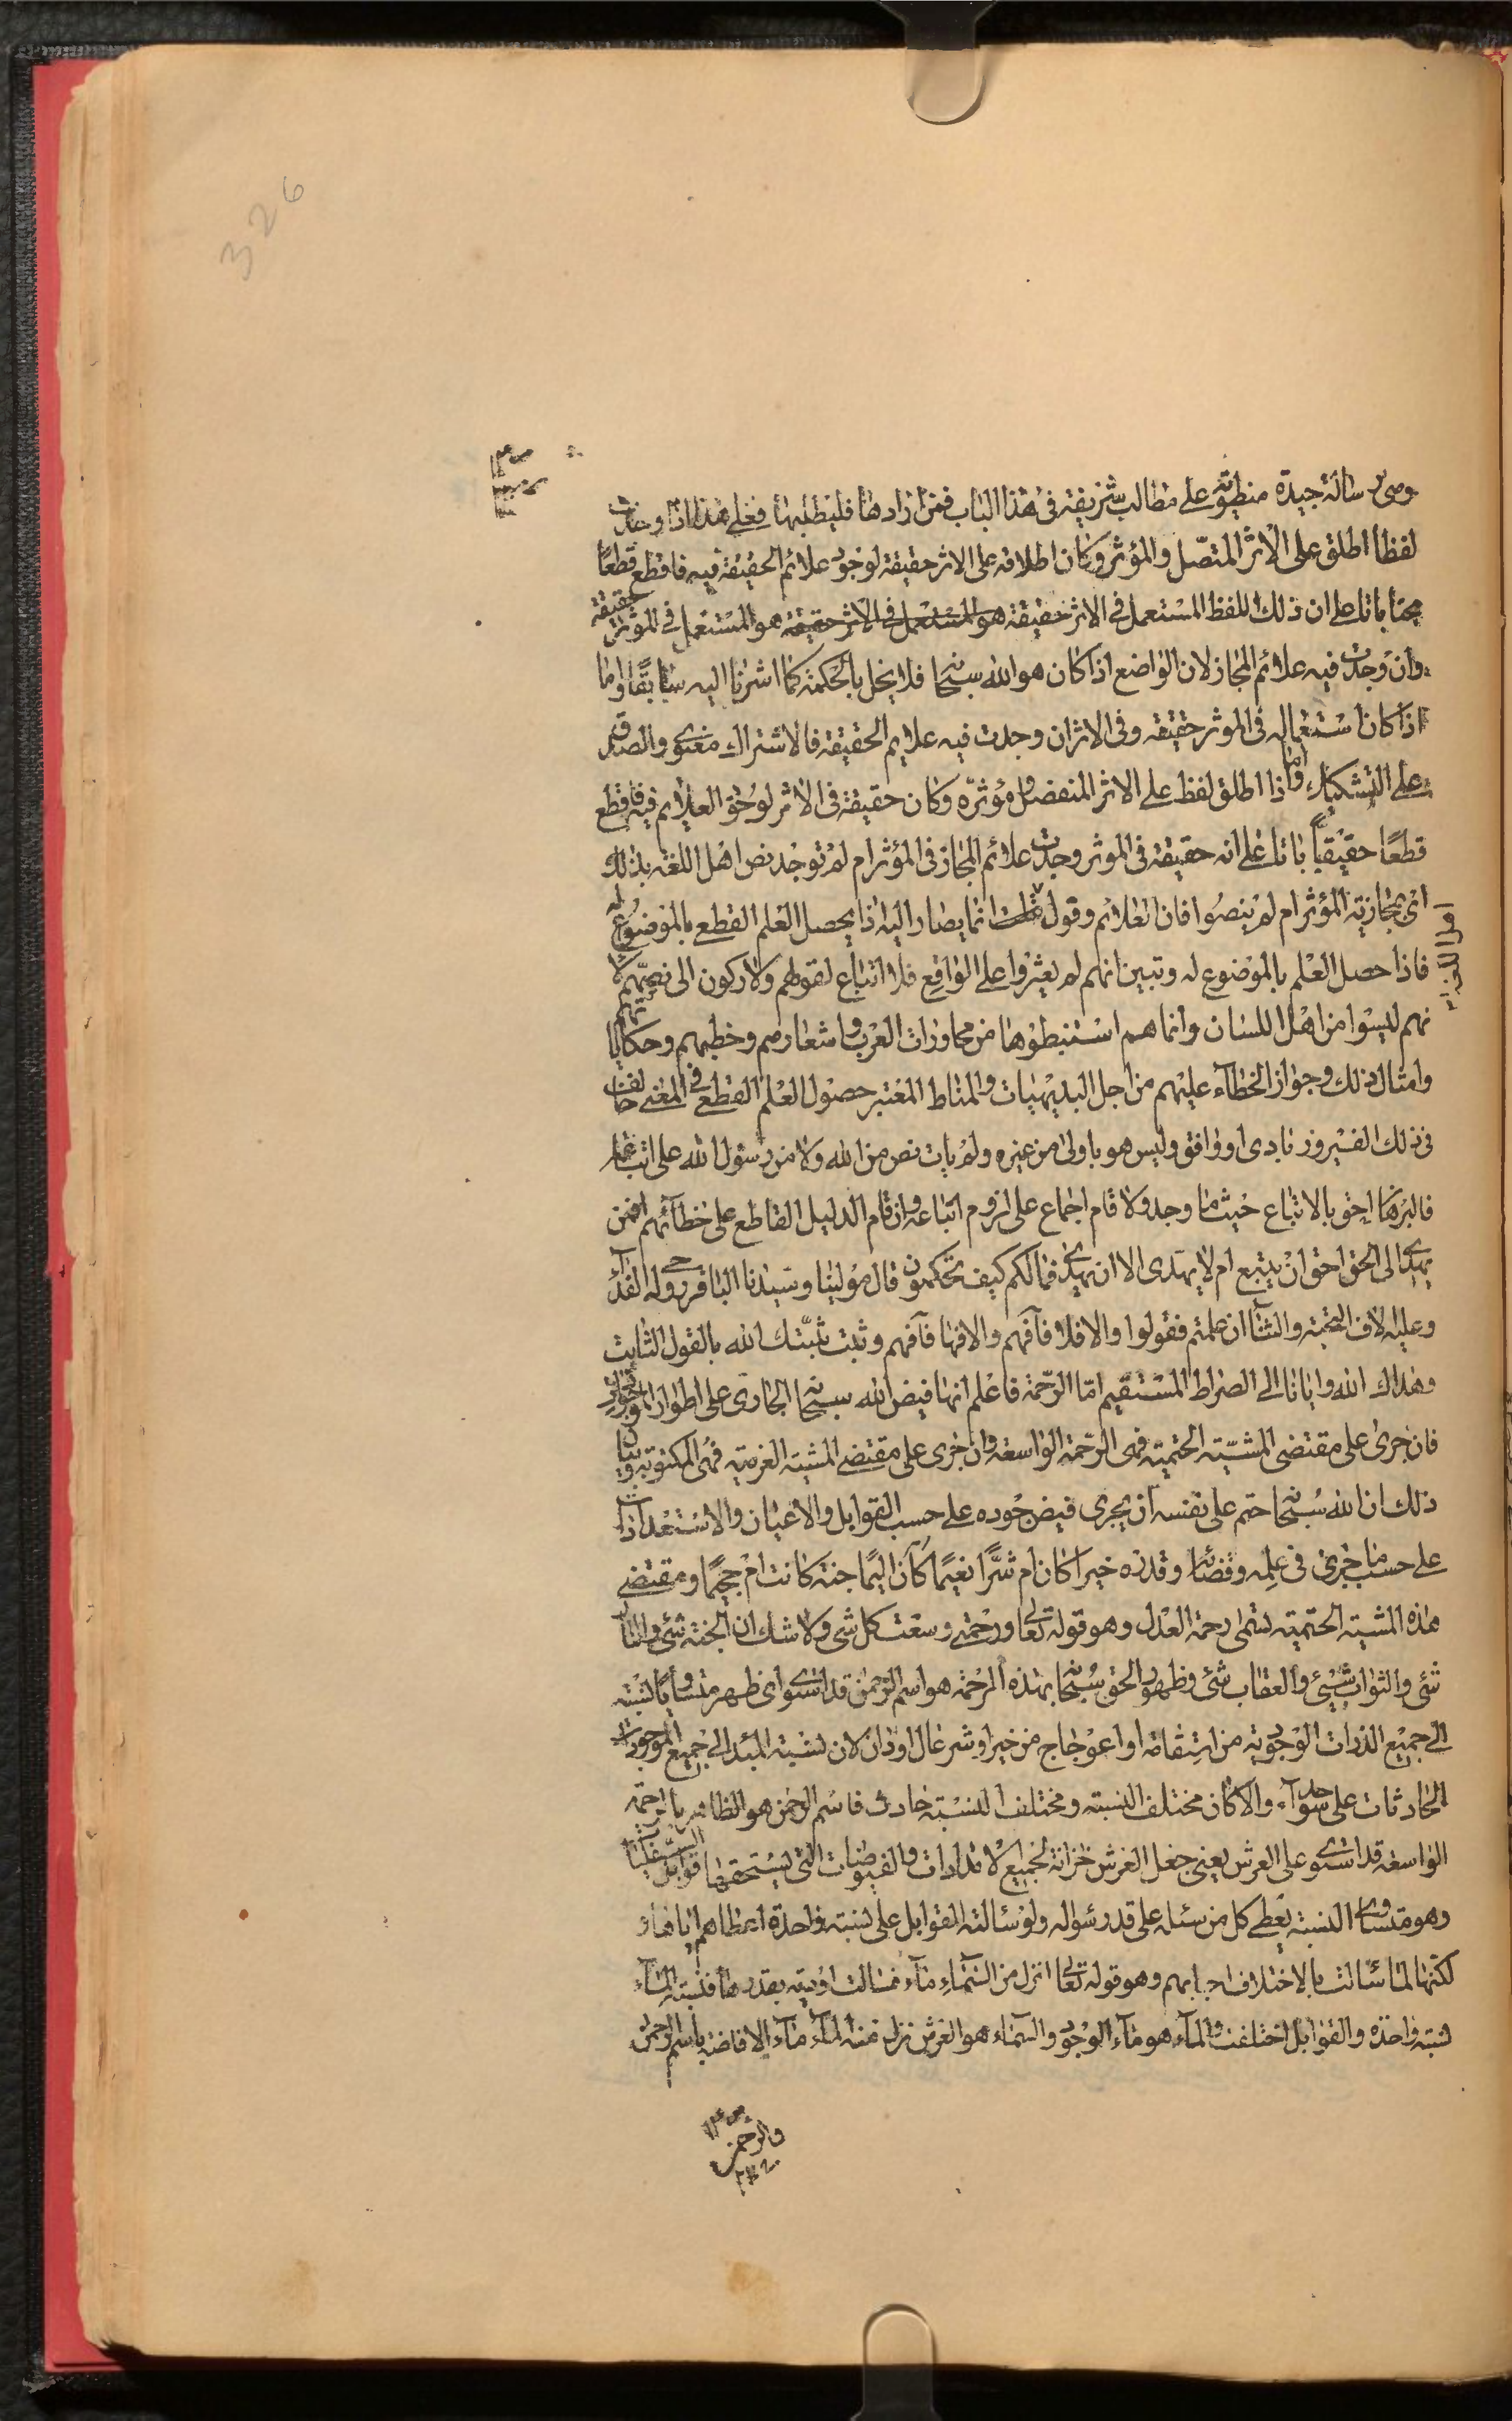 326
وهی رسالة جیدة منطویة علی مطالب شریفة فی هذا الباب فمن ارادها فلیطلبها فعلی هذا اذا وجدت
لفظا اطلق علی الاثر المتصل والمؤثر وکان اطلاقه علی الاثر حقیقة لوجود علائم الحقیقة فیه فاقطع قطعًا
باتا علی ان ذلك اللفظ المستعمل فی الاثر حقیقة هو المستعمل فی الاثر حقیقة هو المستعمل فی المؤثر حقیقة
وان وجدت فیه علائم المجاز لان الواضع اذا کان هو الله سبحانه فلا یخل بالحکمة کما اشرنا الیه سابقًا واما
اذا کان استعماله فی الموثر حقیقة وفی الاثر ان وجدت فیه علایم الحقیقة فالاشتراك معنوی والصدق
علی التشکیك واما اذا اطلق لفظ علی الاثر المنفصل ومؤثره وکان حقیقة فی الاثر لوجود العلایم فیه فاقطع
قطعًا حقیقیًا باتا علی انه حقیقة فی الموثر وجدت علائم المجاز فی المؤثر ام لم توجد نص اهل اللغة بذلك
ای بمجازیة المؤثر ام لم ینصوا فان العلائم وقول اهل اللغة انما یصار الیه اذا لم یحصل العلم القطعی بالموضوع له
فاذا حصل العلم بالموضوع له وتبین انهم لم یعثروا علی الواقع فلا اتباع لقولهم ولا رکون الی نصهم لا
نهم لیسوا من اهل اللسان وانما هم استنبطوها من محاورات العرب واشعارهم وخطبهم وحکایاتهم
وامثال ذلك وجواز الخطآء علیهم من اجل البدیهیات والمناط المعتبر حصول العلم القطعی فی المعنی خالف
فی ذلك الفیروزابادی او وافق ولیس هو باولی من غیره ولم یات نص من الله ولا من رسول الله علی اتباعه
فالبرهان احق بالاتباع حیث ما وجد ولا قام اجماع علی لزوم اتباعه وان قام الدلیل القاطع علی خطآئهم افمن
یهدی الی الحق احق ان یتبع ام لا یهدی الا ان یهدی فما لکم کیف تحکمون قال مولینا وسیدنا الباقر روحی له الفدآء
وعلیه الاف التحیة والثنآ ان علمتم فقولوا والا فلا فافهم والا فها فافهم وثبت ثبتك الله بالقول الثابت
وهداك الله وایانا الی الصراط المستقیم اما الرحمة فاعلم انها فیض الله سبحانه الجاری علی اطوار الموجودات
فان جری علی مقتضی المشیة الحتمیة فهی الرحمة الواسعة وان جری علی مقتضی المشیة العزمیة فهی المکتوبة وبیان
ذلك ان الله سبحانه حتم علی نفسه ان یجری فیض جوده علی حسب القوابل والاعیان والاستعدادات
علی حسب ما جری فی علمه وقضائه وقدره خیرا کان ام شرًا نعیمًا کان الیمًا جنة کانت ام جحیمًا ومقتضی
هذه المشیة الحتمیة تسمی رحمة العدل وهو قوله تعالی ورحمتی وسعت کل شیء ولا شك ان الجنة شیء والنار
شیء والثواب شیء والعقاب شیء وظهور الحق سبحانه بهذه الرحمة هو اسم الرحمن قد استوی ای ظهر متساوی النسبة
الی جمیع الذرات الوجودیة من استقامة او اعوجاج من خیر او شر عال او دان لان نسبة المبدا الی جمیع الموجودات
الحادثات علی حد سوآء والا کان مختلف النسبة ومختلف النسبة حادث فاسم الرحمن هو الظاهر بالرحمة
الواسعة قد استوی علی العرش یعنی جعل العرش خزانة لجمیع الامدادات والفیوضات التی یستحقها قوابل السفلیات
وهو متساوی النسبة یعطی کل من سئله علی قدر سؤاله ولو سئالته القوابل علی نسبة واحدة اعطاهم
لکنها لما سئالت بالاختلاف اجابهم وهو قوله تعالی انزل من السمآء مآء فسالت اودیة بقدرها فنسبة المآء
نسبة واحدة والقوابل اختلفت والمآء هو مآء الوجود والسماء هو العرش نزل منه المآء مآء الافاضة باسم الرحمن
والرحمن